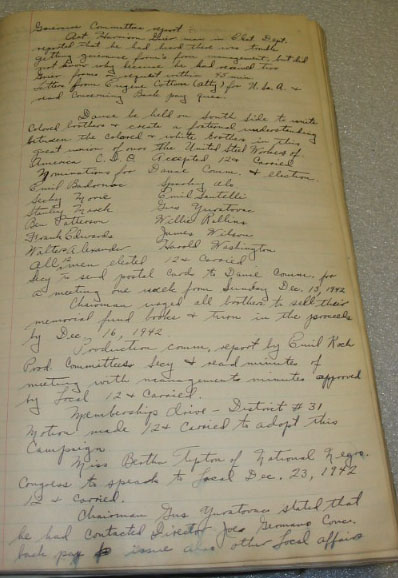 Grievance Committee report
Art Harrison Griev man in Chct Dept.
reported that he had heard there was trouble
getting grievance forms from management but did
not know why because he had received two
Griev forms I request within 45 min.
Letters from Eugene Cotton (atty) for U.S.A. &
read concerning Back pay ques.
Dance be held on South Side to unite
Colored brothers & create a fraternal understanding
between the colored & white brothers in this
great union of ours the United Steel Workers of
America C.I.O. Accepted 12 & Carried
Nominations for Dance Comm. & election.
Emil Badornac
Spooley Alo
Sidney Moore
Emil Santelli
Stanley Mach
Gus Yuratovac
Ben Patterson
Willie Rollins
Frank Edwards
James Wilson
Walter Alexander
Harold Washington
All 12 men elected 12 & Carried
Secy to send postal cards to Dance Comm. for
a meeting one week from Sunday Dec. 13, 1942
Chairman urged all brothers to sell their
memorial fund books & turn in the proceeds
by Dec, 16, 1942
Production comm. report by Emil Koch
Prod. Committees Secy & read minutes of
meeting with managements minutes approved
by Local 12 & Carried.
Membership drive - District # 31
Motion made 12 & Carried to adopt this
Campaign
Miss Bertha Tipton of National Negro
Congress to speak to Local Dec. 23, 1942
12 & Carried.
Chairman Gus Yuratovac stated that
he had Contacted Director Joe Germano Conc.
back pay issue also other Local affairs